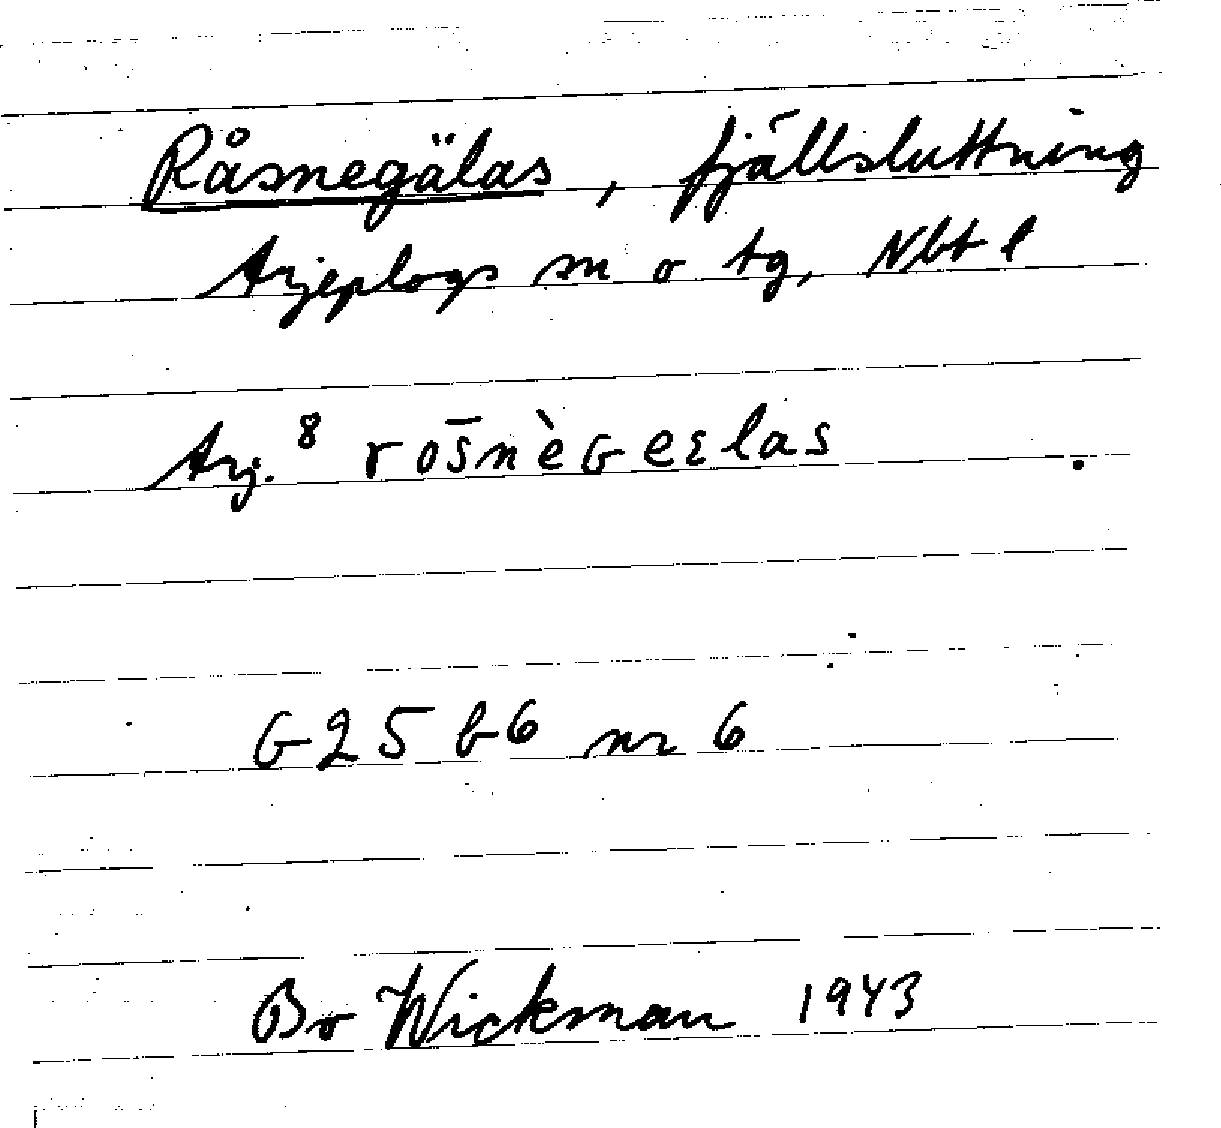 Råsnegälas, fjällsluttning
Arjeplogs sn o tg, Nbt l
Arj. 8 ros̄nèɢeɛlas
G25 b6 nr 6
Bo Wickman 1943